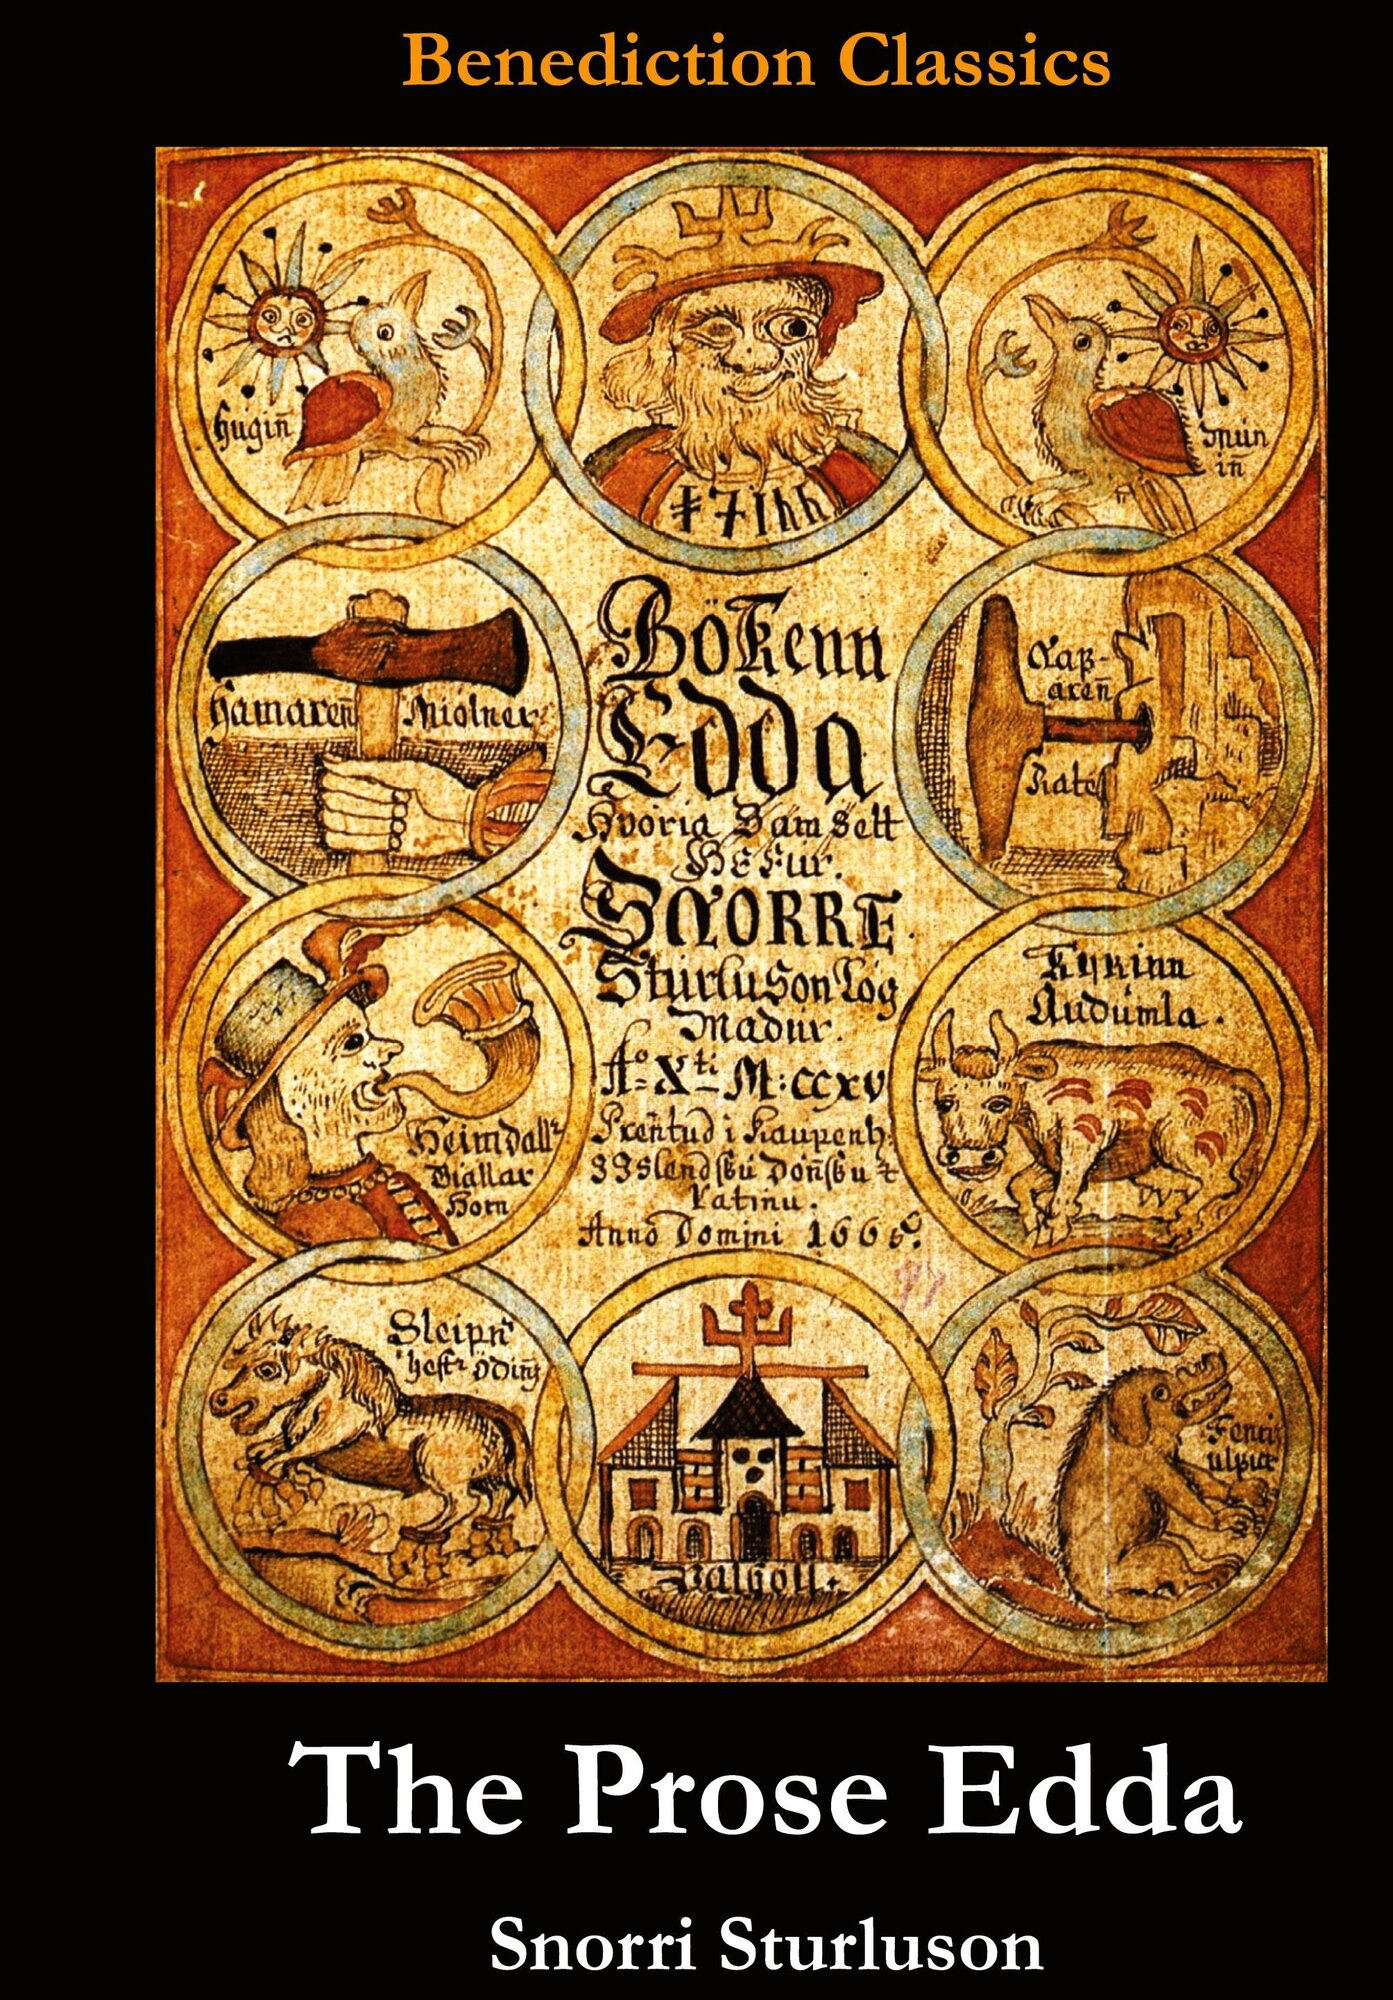 Benediction Classics
hugiñ
mun
iñ
Bökenn
Edda
Hvoria Sam Sett
Hefur
SNORRE
Sturluson Lög
Madur.
Aº Xti M:ccxv
Prentud i Kaupenh
Latinu.
Anno Domini 1665
Hamareñ Miölner
Heimdallr
Giallar
Horn
Kyrinn
Audumla.
Sleipnr
hestr Odins
Valholl.
Fenris
ulfur
The Prose Edda
Snorri Sturluson